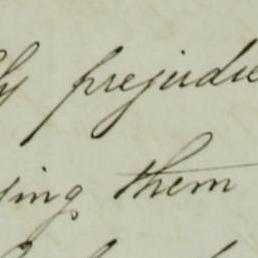 ly prejudic
ing them